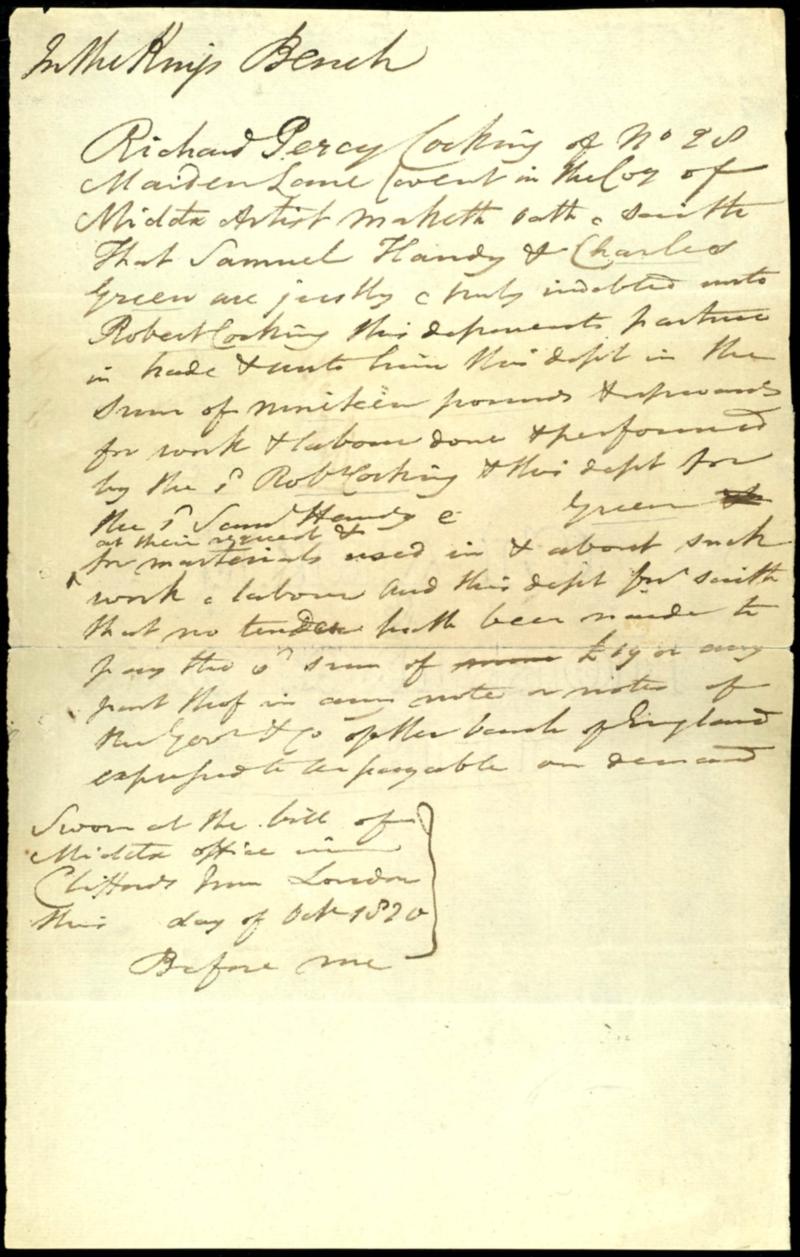 In the Kings Bench
Richard Percy Cocking of No 28
Maiden Lane Covent in the Coy of
Middx Artist maketh oath & saith
that Samuel Handy & Charles
Green are justly & truly indebted unto
Robert Cocking this deponents partner
in trade & unto him this dept in the
sum of nineteen pounds & upwards
for work & labour done & performed
by the sd Robt Cocking & this dept for
the sd Saml Handy & Green
at their request &
for materials used in & about such
work & labour and this dept furr saith
that no tender hath been made to
pay the sd sum of £19 or any
part thof in any note or notes of
the Govr & Co of the bank of England
expressed to be payable on demand
Sworn at the bill of
Middx office in
Cliffords Inn London
this day of Octr 1820
Before me